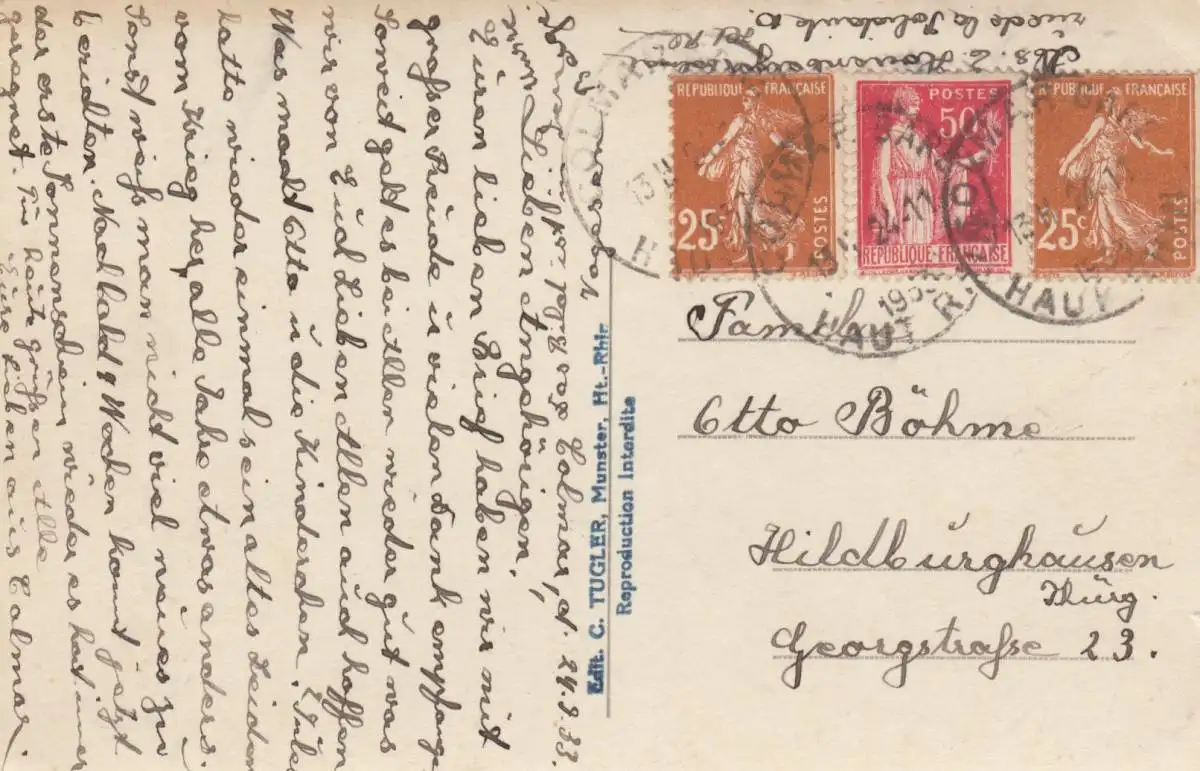 Abs. E.
rue de la
Münster
Nr. 178 vog. Colmar, d. 24.9.33.
Meine Lieben Angehörigen,
Euren lieben Brief haben wir mit
grosser Freude u vielen Dank empfangen
Soweit geht es bei Allen wieder gut was
wir von Euch Lieben Allen auch hoffen
Was macht Otto u die Kinderchen. Jule
hatte wieder einmal sein altes Leiden
vom Krieg her, alle Jahre etwas anders.
Sonst weiss man nicht viel neues zu
berichten. Nach bald 9 Wochen kommt jetzt
der erste Sonnenschein wieder es hat immer
geregnet. Für heute grüssen Alle
Eure Lieben aus Colmar.
Edit. C. TUGLER, Munster, Ht.-Rhin
Reproduction Interdite
REPUBLIQUE FRANÇAISE
25c
POSTES
POSTES
50c
REPUBLIQUE FRANÇAISE
REPUBLIQUE FRANÇAISE
25c
POSTES
COLMAR
HAUT R.
Familie
Otto Böhme
Hildburghausen
Thürg.
Georgstrasse 23.